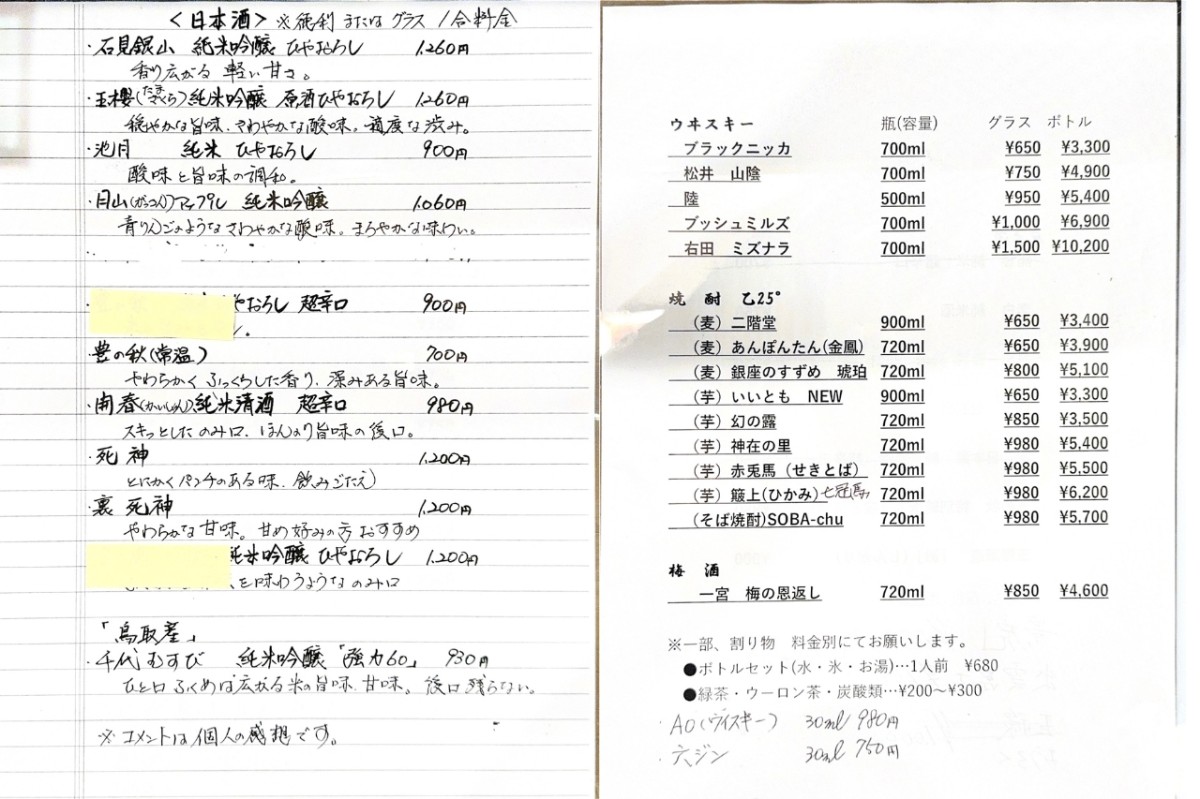 ＜日本酒＞ ※徳利またはグラス 1合料金
・石見銀山 純米吟醸 ひやおろし 1,260円
香り広がる 軽い甘さ。
・玉櫻(たまさくら)純米吟醸 原酒ひやおろし 1,260円
穏やかな旨味、さわやかな酸味。適度な渋み。
・池月 純米 ひやおろし 900円
酸味と旨味の調和。
・月山(がっさん)アップル 純米吟醸 1,060円
青りんごのようなさわやかな酸味。まろやかな味わい。
やおろし 超辛口 900円
・豊の秋(常温) 700円
やわらかく ふっくらした香り、深みある旨味。
・開春(かいしゅん)純米清酒 超辛口 980円
スキっとしたのみ口、ほんのり旨味の後口。
・死神 1,200円
とにかくパンチのある味、飲みごたえ)
・裏 死神 1,200円
やわらかな甘味。甘め好みの方おすすめ
純米吟醸 ひやおろし 1,200円
を味わうようなのみ口
「鳥取産」
・千代むすび 純米吟醸「強力60」 930円
ひと口ふくめば広がる米の旨味、甘味。後口残らない。
※コメントは個人の感想です。
ウヰスキー 瓶(容量) グラス ボトル
ブラックニッカ 700ml ¥650 ¥3,300
松井 山陰 700ml ¥750 ¥4,900
陸 500ml ¥950 ¥5,400
ブッシュミルズ 700ml ¥1,000 ¥6,900
右田 ミズナラ 700ml ¥1,500 ¥10,200
焼 酎 乙25°
（麦）二階堂 900ml ¥650 ¥3,400
（麦）あんぽんたん(金鳳) 720ml ¥650 ¥3,900
（麦）銀座のすずめ 琥珀 720ml ¥800 ¥5,100
（芋）いいとも NEW 900ml ¥650 ¥3,300
（芋）幻の露 720ml ¥850 ¥3,500
（芋）神在の里 720ml ¥980 ¥5,400
（芋）赤兎馬（せきとば） 720ml ¥980 ¥5,500
（芋）簸上(ひかみ)七冠馬 720ml ¥980 ¥6,200
（そば焼酎)SOBA-chu 720ml ¥980 ¥5,700
梅 酒
一宮 梅の恩返し 720ml ¥850 ¥4,600
※一部、割り物 料金別にてお願いします。
●ボトルセット(水・氷・お湯)…1人前 ¥680
●緑茶・ウーロン茶・炭酸類…¥200～¥300
・AO(ヴィスキー) 30ml 980円
・六ジン 30ml 750円